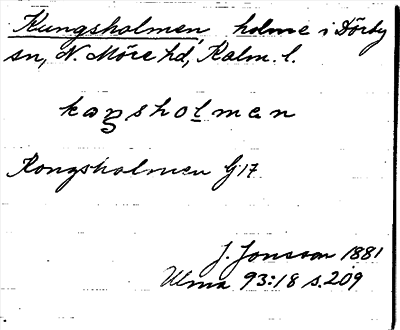 Kungsholmen, holme i Dörby
sn, N. Möre hd, Kalm. l.
kaŋsholmen
Kongsholmen G 17
J. Jonsson 1881
Ulma 93:18 s. 209